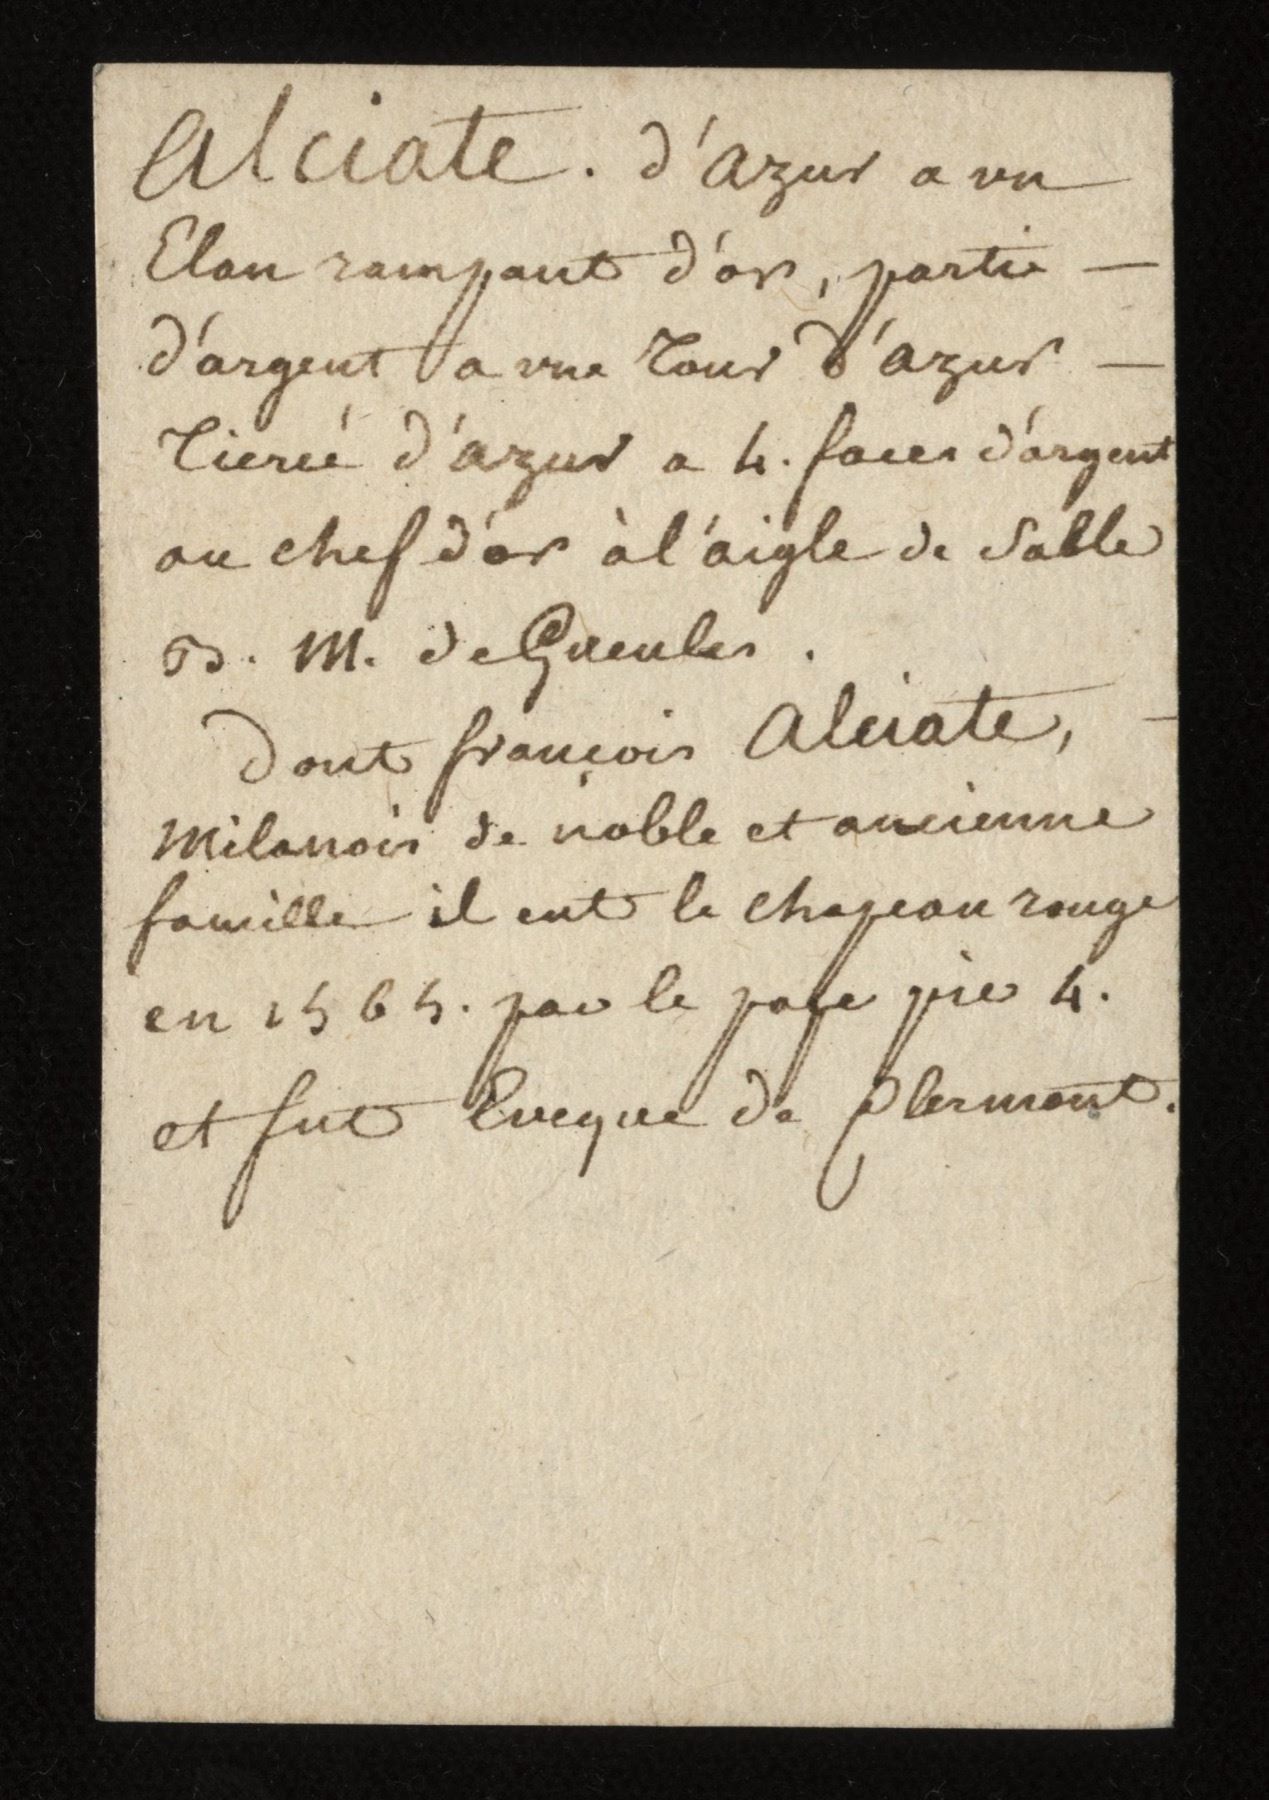 Alciate. d'azur a un
Elan rampant d'or, partie —
d'argent a une Tour d'azur —
Tiercé d'azur a 4. faces d'argent
au chef d'or à l'aigle de Sable
B. M. de Gueules.
Dont françois Alciate, —
Milanois de noble et ancienne
famille il eut le chapeau rouge
en 1565. par le pape pie 4.
et fut Eveque de Clermont.